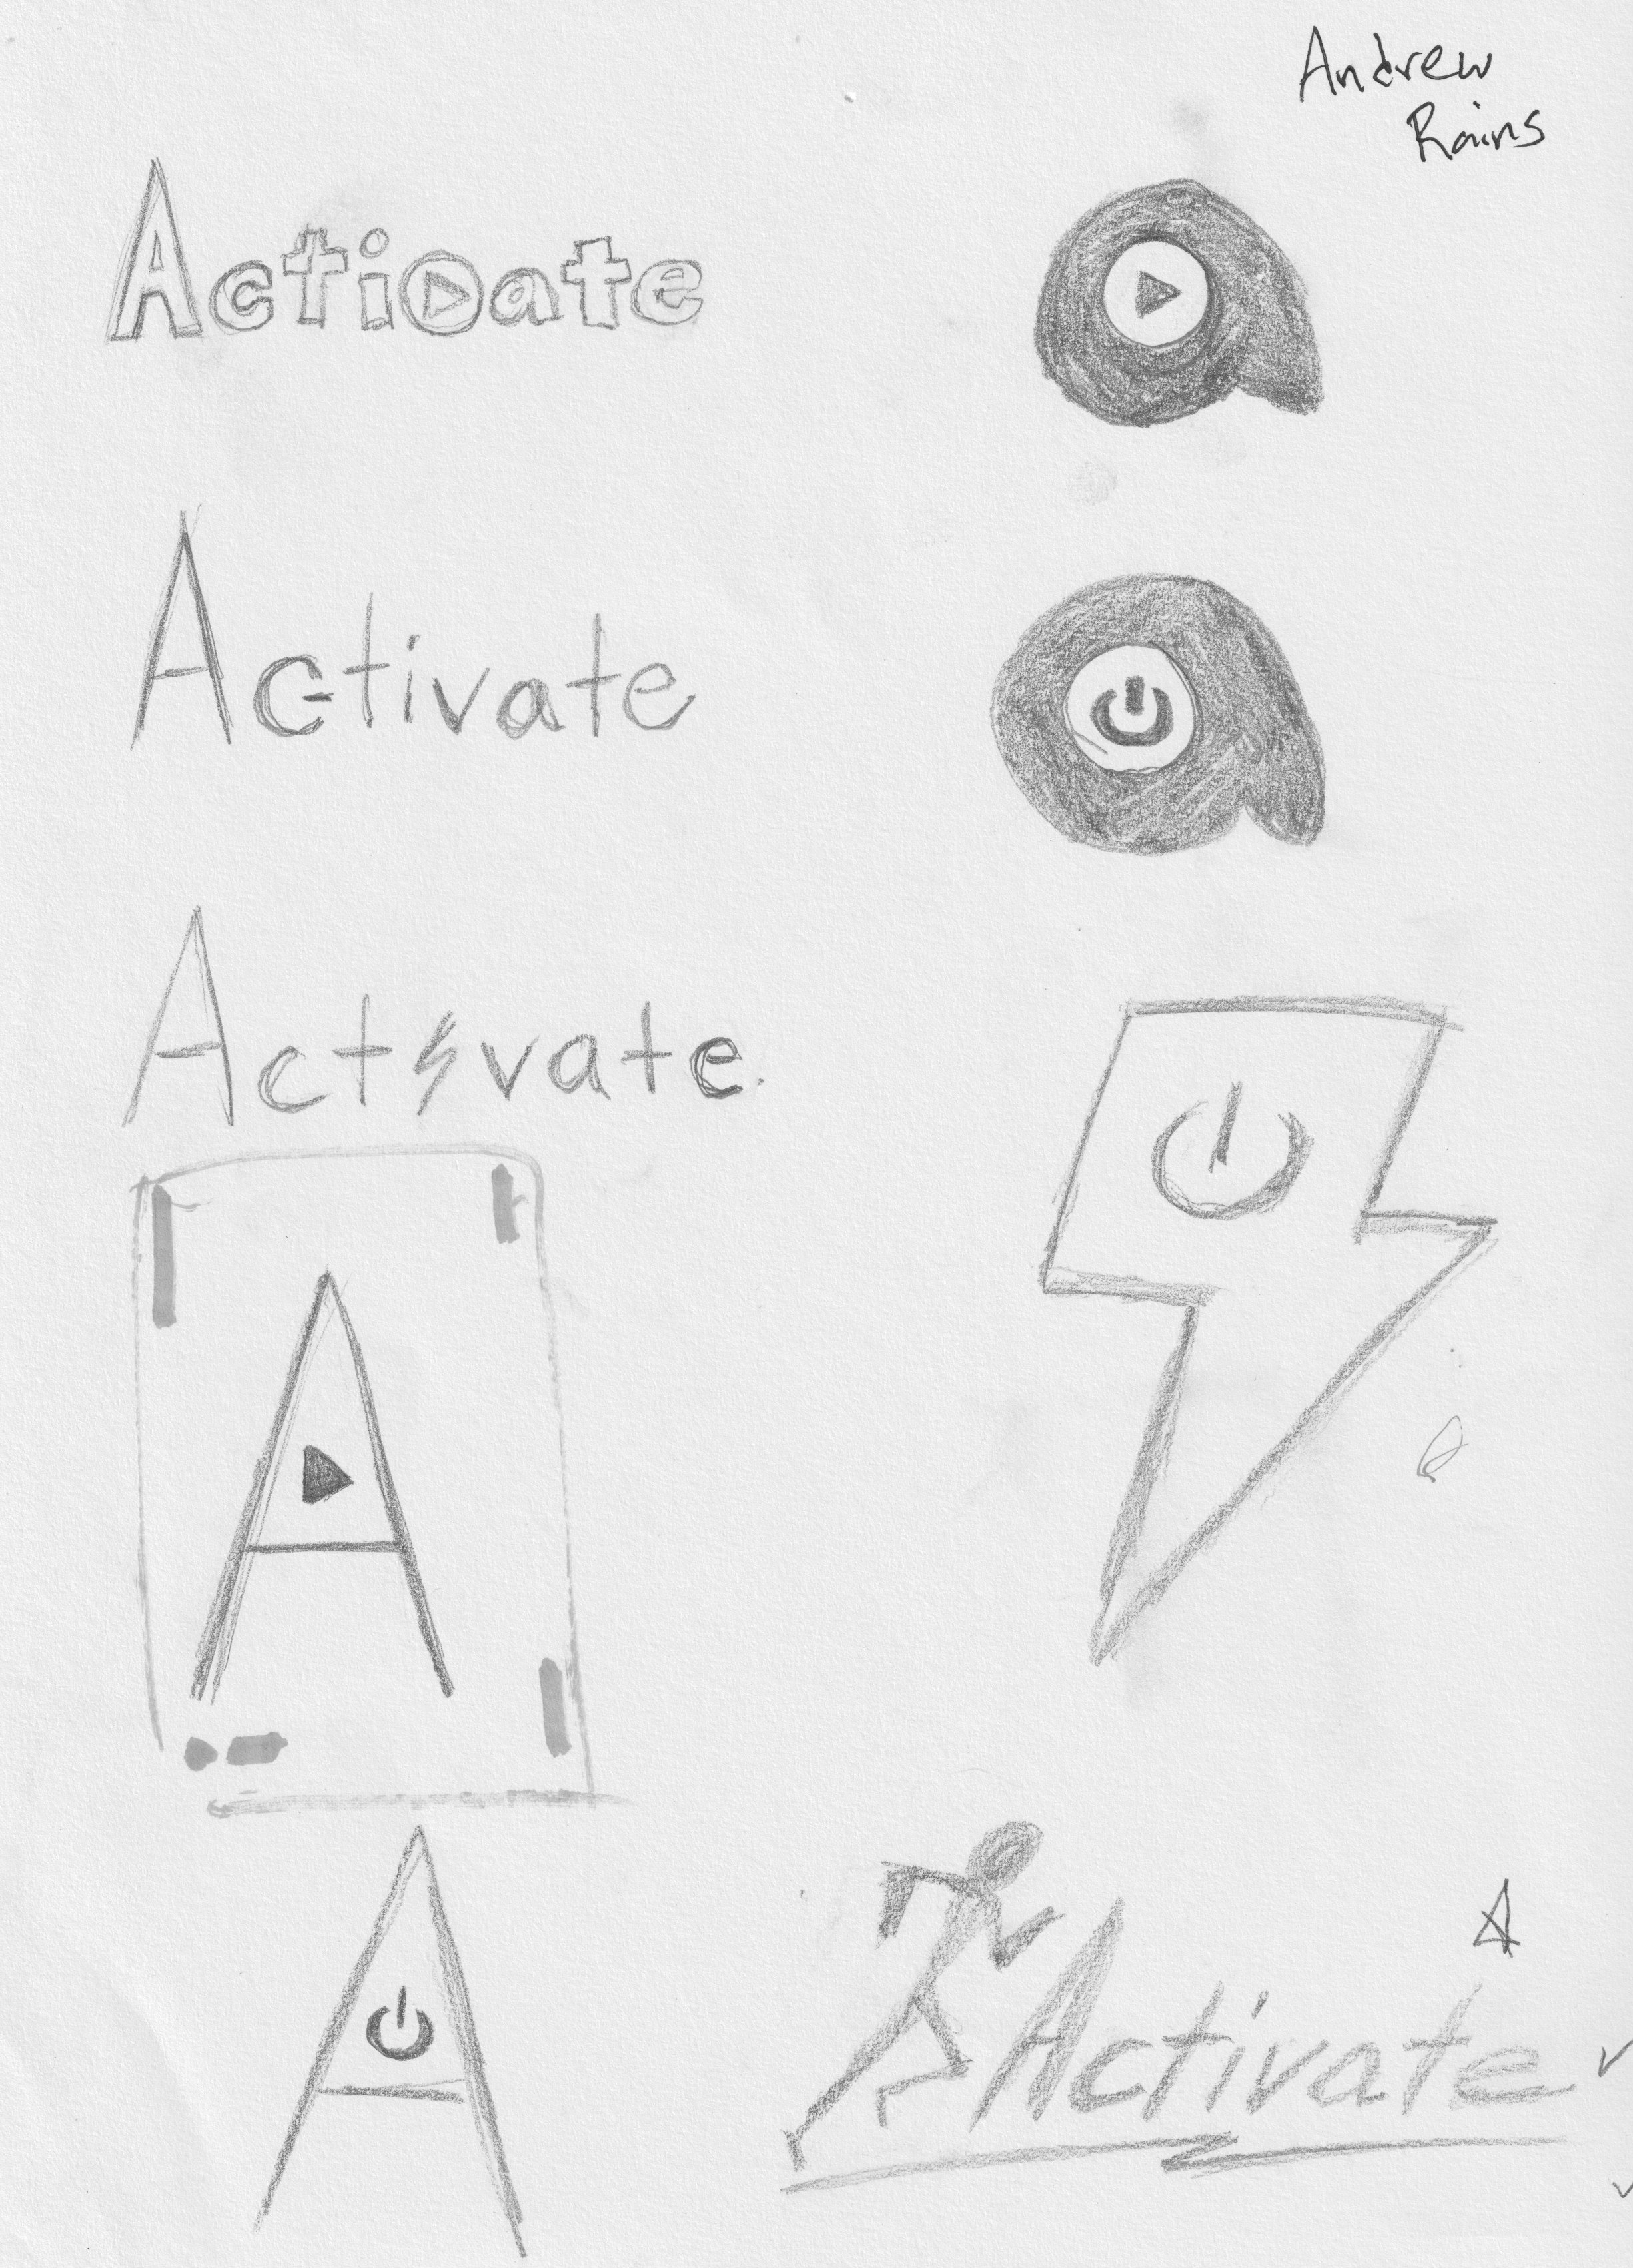 Andrew
Rains
Acti▶ate
Activate
Act⚡vate
A
A
Activate